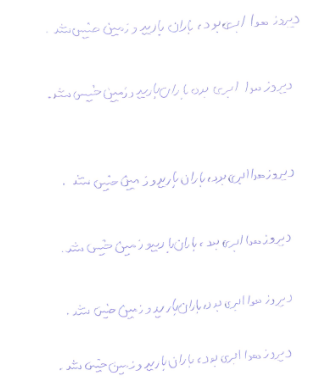 دیروز هوا ابری بود، باران بارید و زمین خیس شد.
دیروز هوا ابری بود باران بارید و زمین خیس شد.
دیروز هوا ابری بود، باران بارید و زمین خیس شد.
دیروز هوا ابری بود، باران بارید و زمین خیس شد.
دیروز هوا ابری بود باران بارید و زمین خیس شد.
دیروز هوا ابری بود، باران بارید و زمین خیس شد.